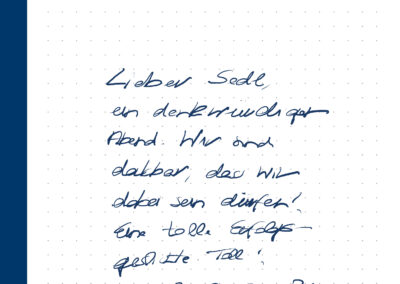 Lieber Sedl,
ein denkwürdiger
Abend. Wir sind
dakbar, das wir
dabei sein dürfen!
Eine tolle Erfolgs-
geschichte. Toll!